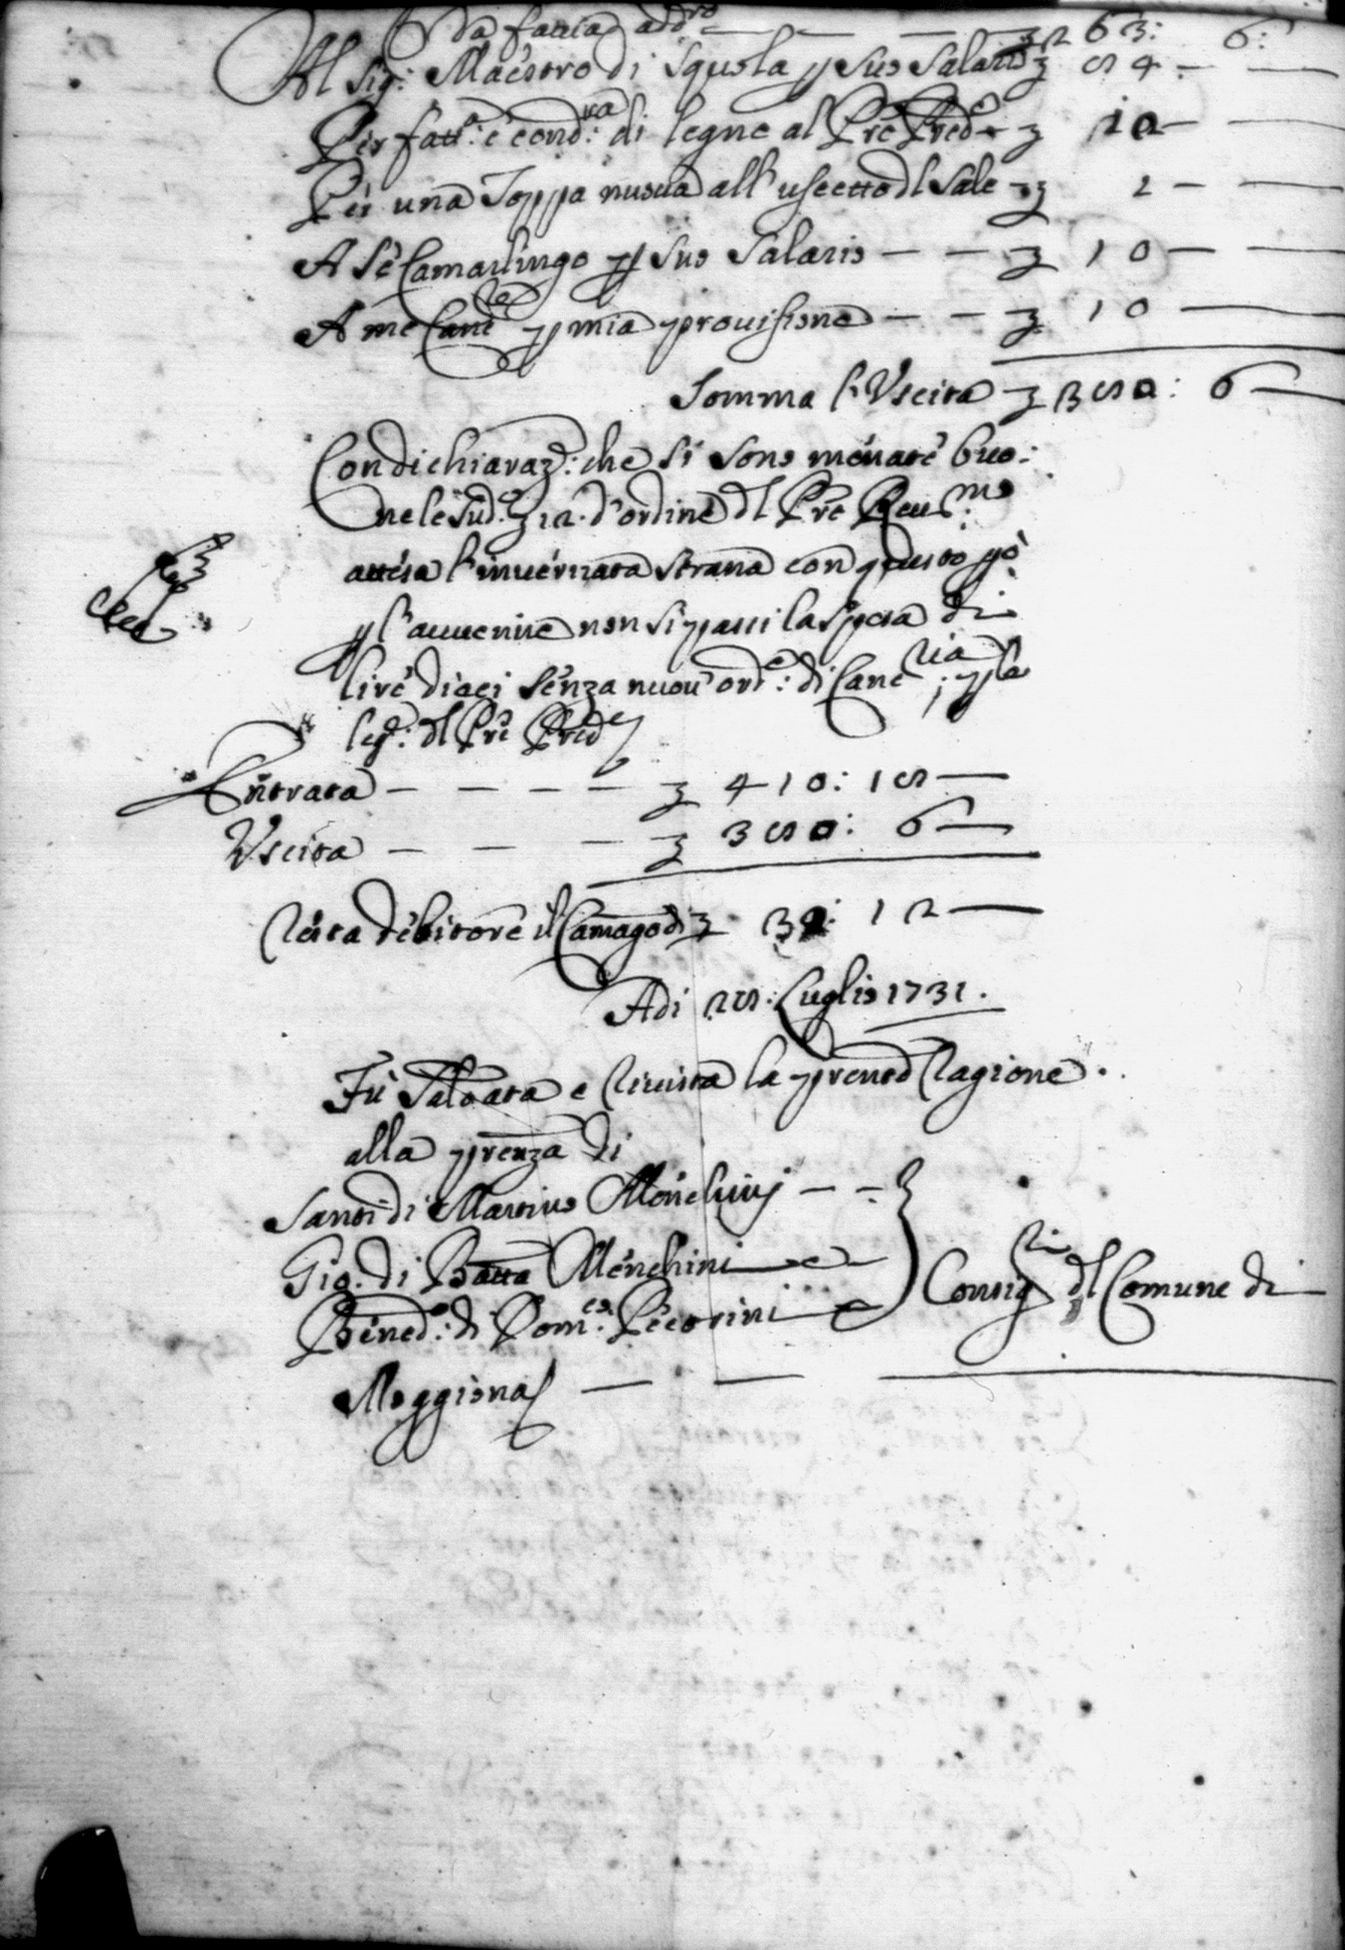 da faccia addro — — — 263: 6:
Al Sig: Maestro di Squola p suo Salario 54 —
Per fattra: e cond:ra di legne al Pre Pred:e 12 —
Per una Toppa nuova all'uscetto dl Sale 2 —
A Sè Camarlingo p suo Salario — — 10 —
A me Cancre p mia provisione — — 10 —
Somma l'Uscita 350: 6 —
Con dichiaraz: che si sono menate buo:
ne le Sud:e 12. d'ordine dl Pre Reu:mo
attesa l'invernata strana con questo pò
p l'avvenire non si passi la spesa di
lire dieci senza nuou' ord:e di Canc:ria; p la
leg: dl Pre Pred
Entrata — — — — 410: 18 —
Uscita — — — 350: 6 —
Resta debitore il Camago di 12 —
Adi 25. Luglio 1731.
Fù Saldata e rivista la prented Ragione.
alla prenza di
Santi di Martino Menchini — —
Gio. di Batta Menchini —
Bened:o di Dom:co Pecorini —
Consigri dl Comune di
Moggiona — —